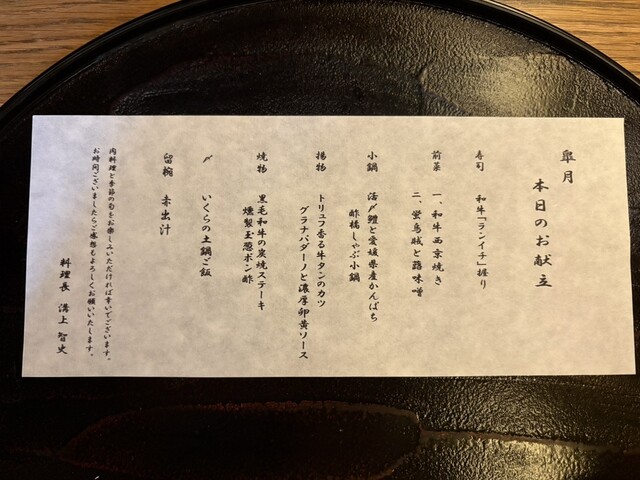 皐月
本日のお献立
寿司　和牛「ランイチ」握り
前菜　一、和牛西京焼き
二、蛍烏賊と蕗味噌
小鍋　活〆鱧と愛媛県産かんぱち
酢橘しゃぶ小鍋
揚物　トリュフ香る牛タンのカツ
グラナパダーノと濃厚卵黄ソース
焼物　黒毛和牛の炭焼ステーキ
燻製玉葱ポン酢
〆　いくらの土鍋ご飯
留椀　赤出汁
肉料理と季節の旬をお楽しみいただければ幸いでございます。
お時間ございましたらご感想もよろしくお願いいたします。
料理長　溝上　智史